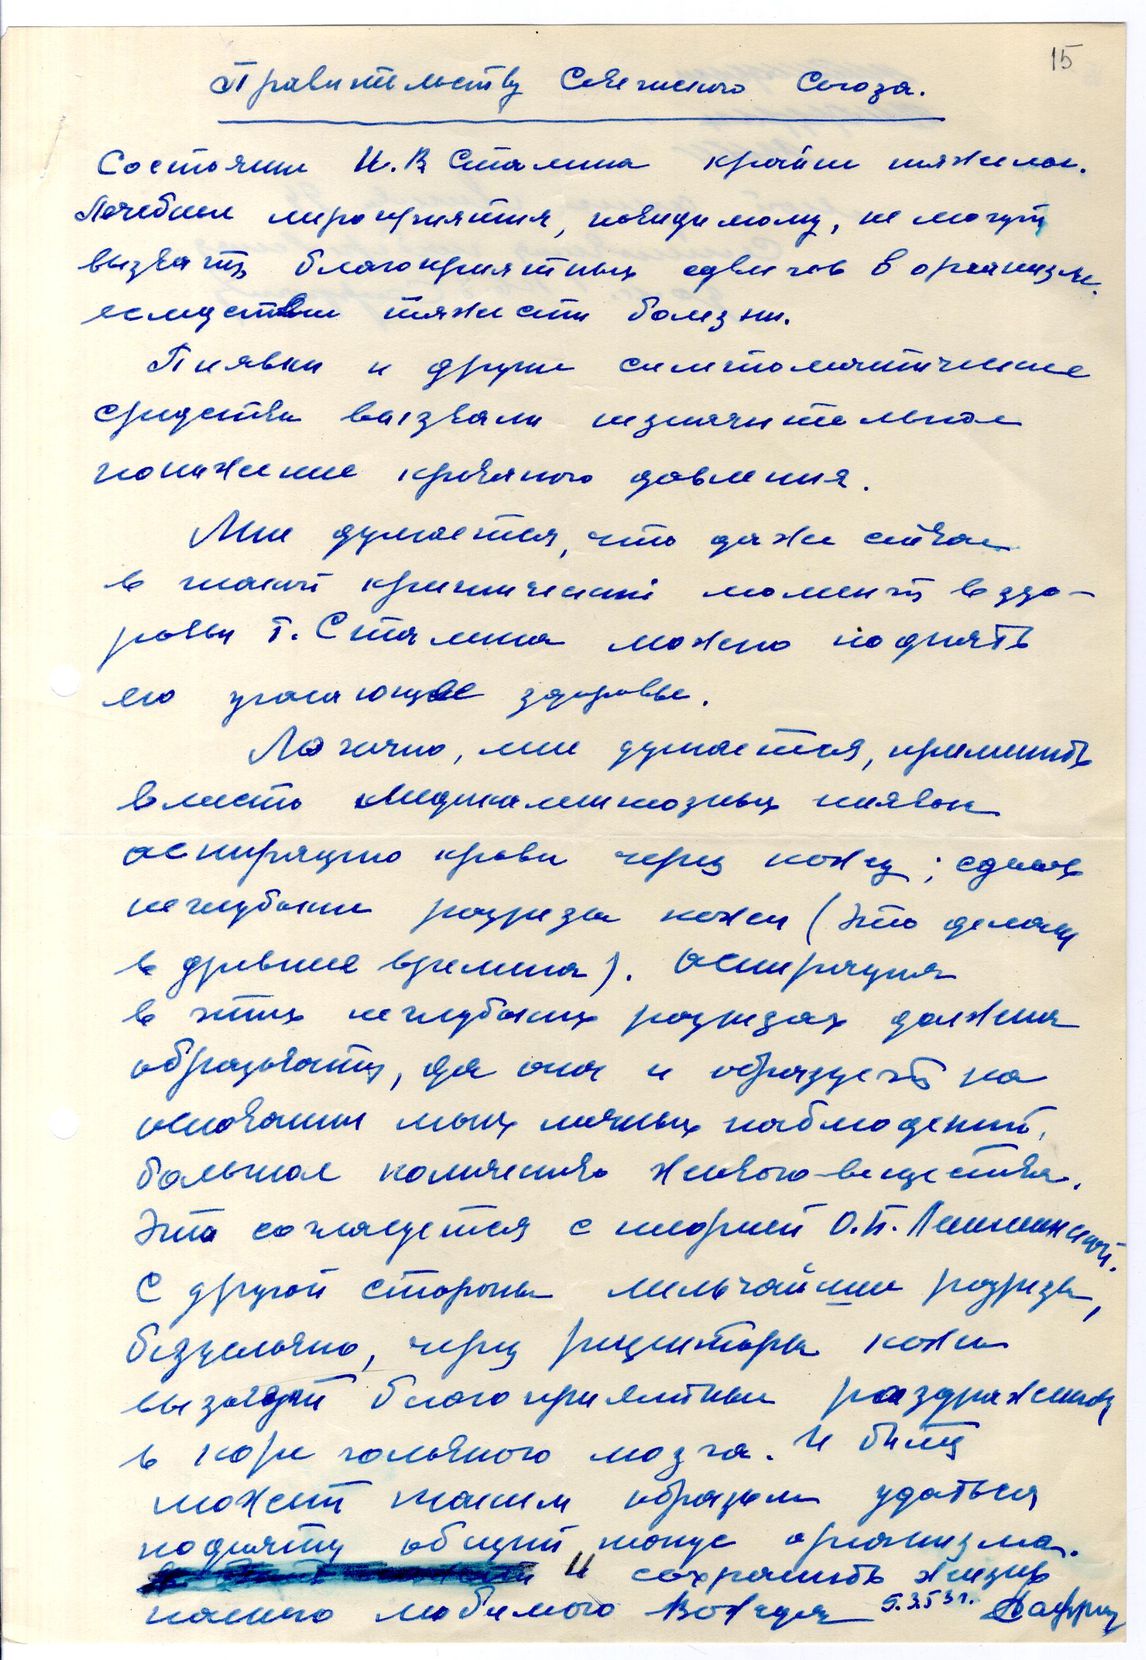 15
Правительству Советского Союза.
Состояние И. В. Сталина крайне тяжелое.
Лечебные мероприятия, повидимому, не могут
вызвать благоприятных сдвигов в организме
вследствии тяжести болезни.
Пиявки и другие симптоматические
средства вызвали незначительное
понижение кровяного давления.
Мне думается, что даже сейчас
в такой критический момент в здо-
ровьи т. Сталина можно поднять
его угасающее здоровье.
Логично, мне думается, применить
вместо медикаментозных пиявок
аспирацию крови через кожу; сделать
неглубокие разрезы кожи (это делали
в древние времена). Аспирация
в этих неглубоких разрезах должна
образовать, да она и образует на
основании моих личных наблюдений,
большое количество живого вещества.
Это согласуется с теорией О. Б. Лепешинской.
С другой стороны мельчайшие разрезы,
безусловно, через рецепторы кожи
вызовут благоприятные раздражения
в коре головного мозга. И быть
может таким образом удастся
поднять общий тонус организма.
И сохранить жизнь
нашего любимого Вождя 5.3.53 г.